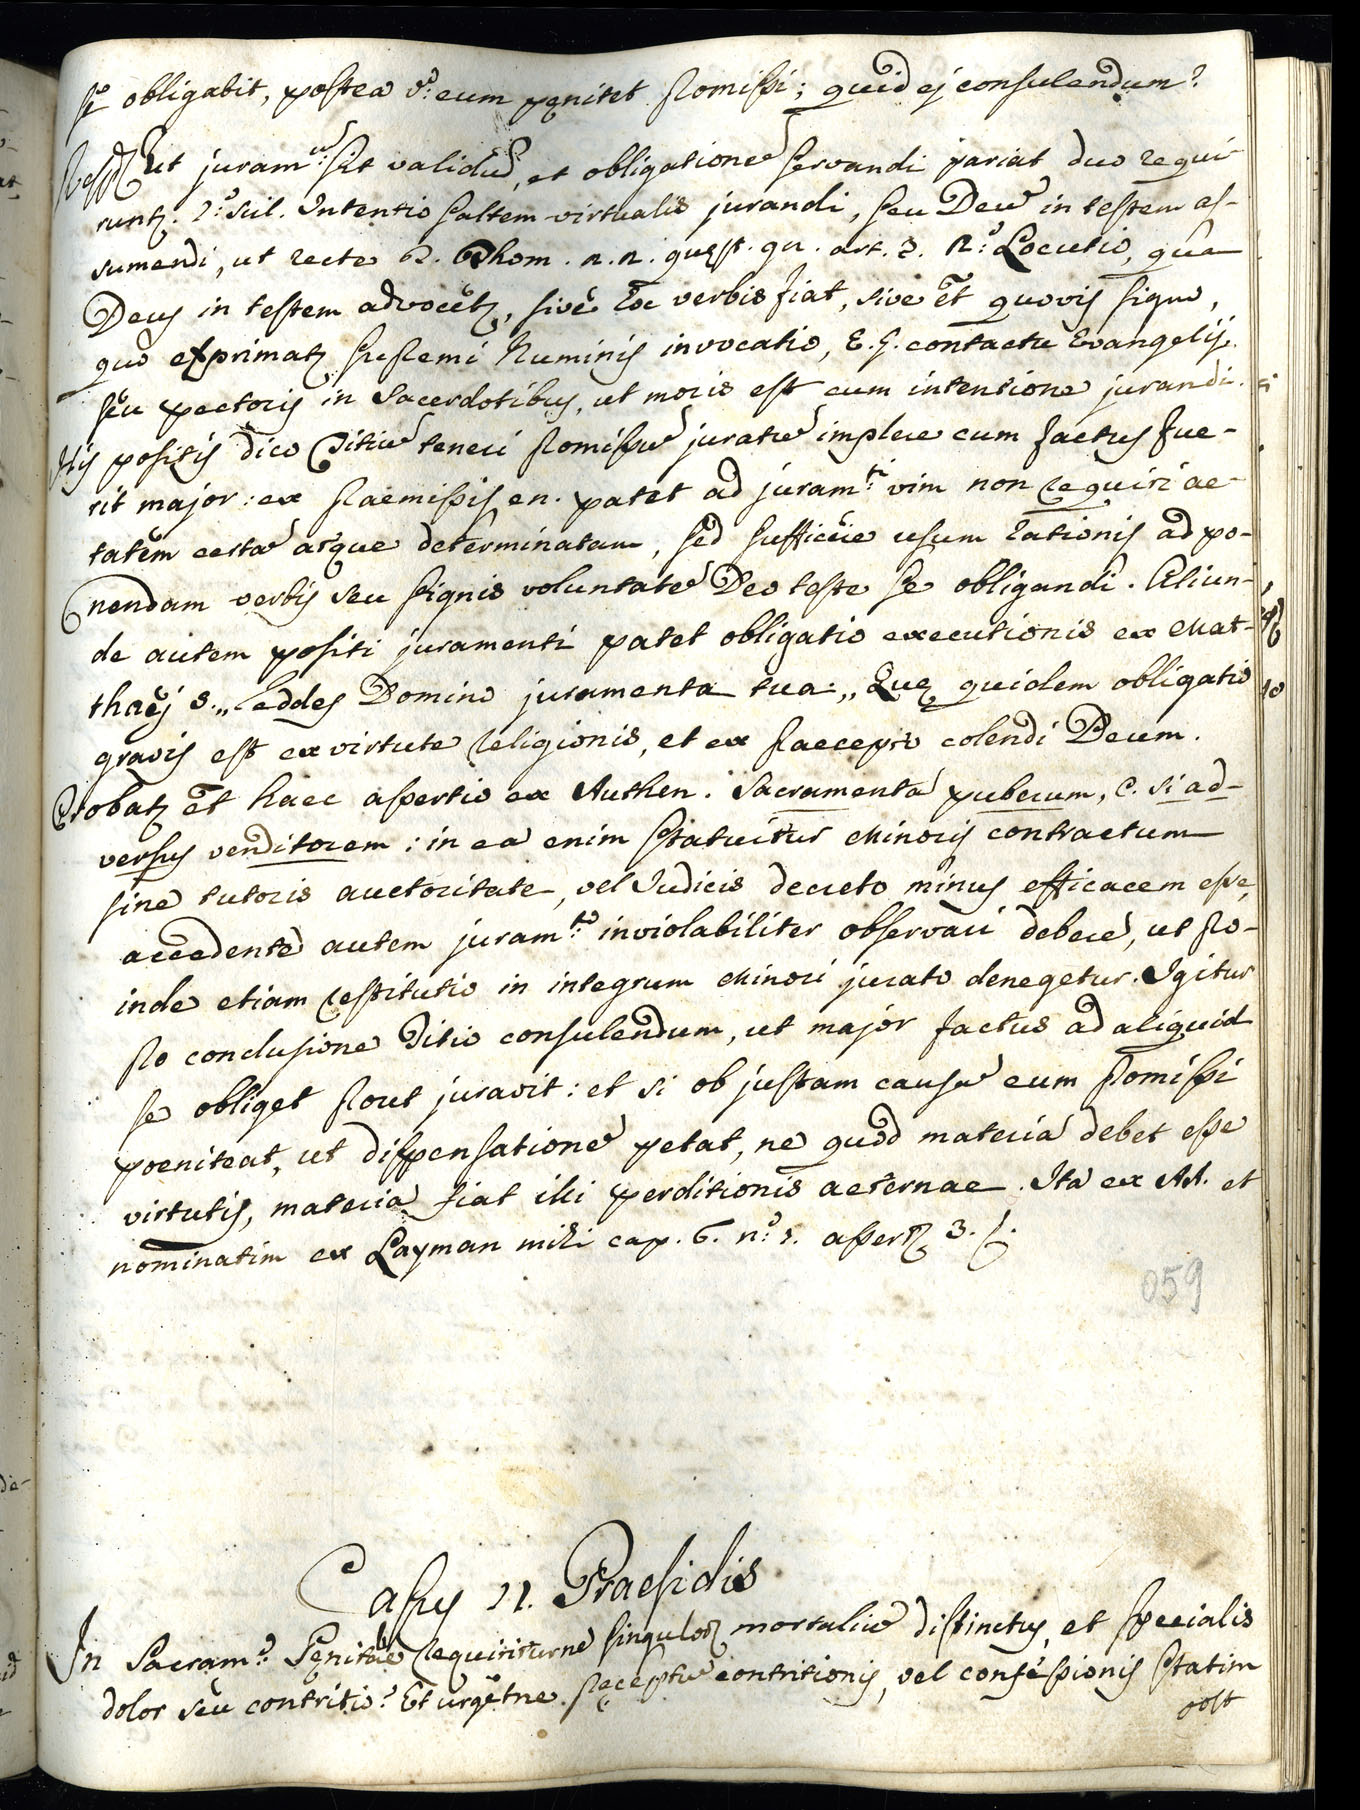 se obligabit, postea vo. eum pęnitet promissi; quid ej consulendum?
Resp. Ut juramtu. sit validu, et obligatione servandi pariat duo requi-
runtur. 1o. scil. Intentio saltem virtualis jurandi, seu Deu in testem as-
sumendi, ut recte D. Thom. 2. 2. quęst. 9n. art. 3. 2o. Locutio, qua
Deus in testem advocetur, sive hoc verbis fiat, sive et quovis signo,
quo exprimatur supremi Numinis invocatio, E. G. contactu Evangelij.
seu pectoris in Sacerdotibus, ut moris est cum intentione jurandi.
His positis dico Titiu teneri promissu juratu implere cum factus fue-
rit major: ex praemissis en. patet ad juramti. vim non requiri ae-
tatem certa atque determinatam, sed sufficere usum rationis ad po-
nendam verbis seu signis voluntate Deo teste se obligandi. Aliun-
de autem positi juramenti patet obligatio executionis ex Mat-
thaej 5. „ reddes Domino juramenta tua: „ Quę quidem obligatio
gravis est ex virtute religionis, et ex praecepto colendi Deum.
Probatur et haec assertio ex Authen. Sacramenta puberum, C. si ad-
versus venditorem: in ea enim statuitur Minoris contractum
sine tutoris auctoritate, vel Judicis decreto minus efficacem esse,
accedente autem juramto. inviolabiliter observari debere, ut pro-
inde etiam restitutio in integrum Minori jurato denegetur. Igitur
pro conclusione Titio consulendum, ut major factus ad aliquid
se obliget prout juravit: et si ob justam causa eum promissi
poeniteat, ut dispensatione petat, ne quod materia debet esse
virtutis, materia fiat illi perditionis aeternae. Ita ex AA. et
nominatim ex Layman mihi cap. 6. no. 5. asser. 3.
059
Casus 11. Praesidis
In Sacramo. Pęnitae requiriturne singulor mortaliu distinctus, et specialis
dolor seu contritio? Et urgetne pręceptu contritionis, vel confessionis statim
post